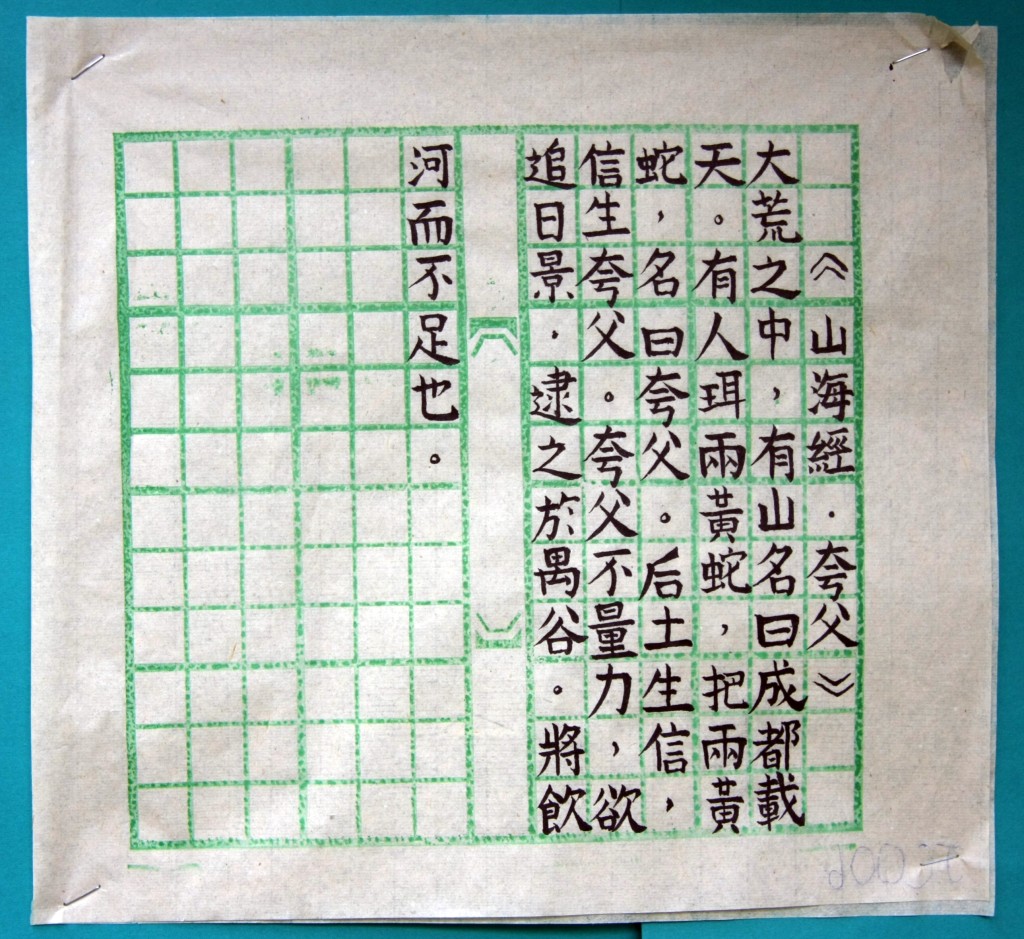 《山海經·夸父》
大荒之中，有山名曰成都載
天。有人珥兩黃蛇，把兩黃
蛇，名曰夸父。后土生信，
信生夸父。夸父不量力，欲
追日景，逮之於禺谷。將飲
河而不足也。